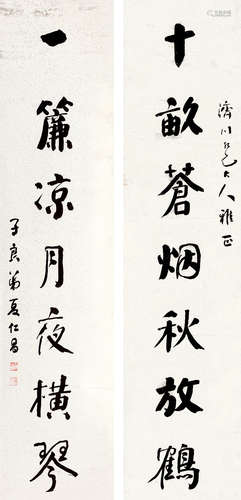 十畝蒼烟秋放鶴
濟川仁兄大人雅正
一簾凉月夜橫琴
子良弟夏仁昌